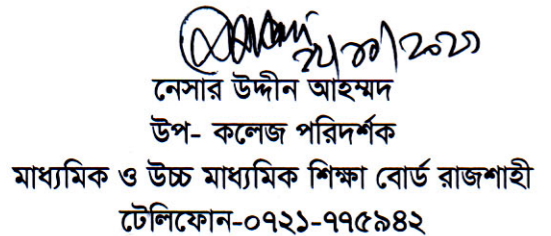 নেসার উদ্দীন আহম্মদ
উপ- কলেজ পরিদর্শক
মাধ্যমিক ও উচ্চ মাধ্যমিক শিক্ষা বোর্ড রাজশাহী
টেলিফোন-০৭২১-৭৭৫৯৪২